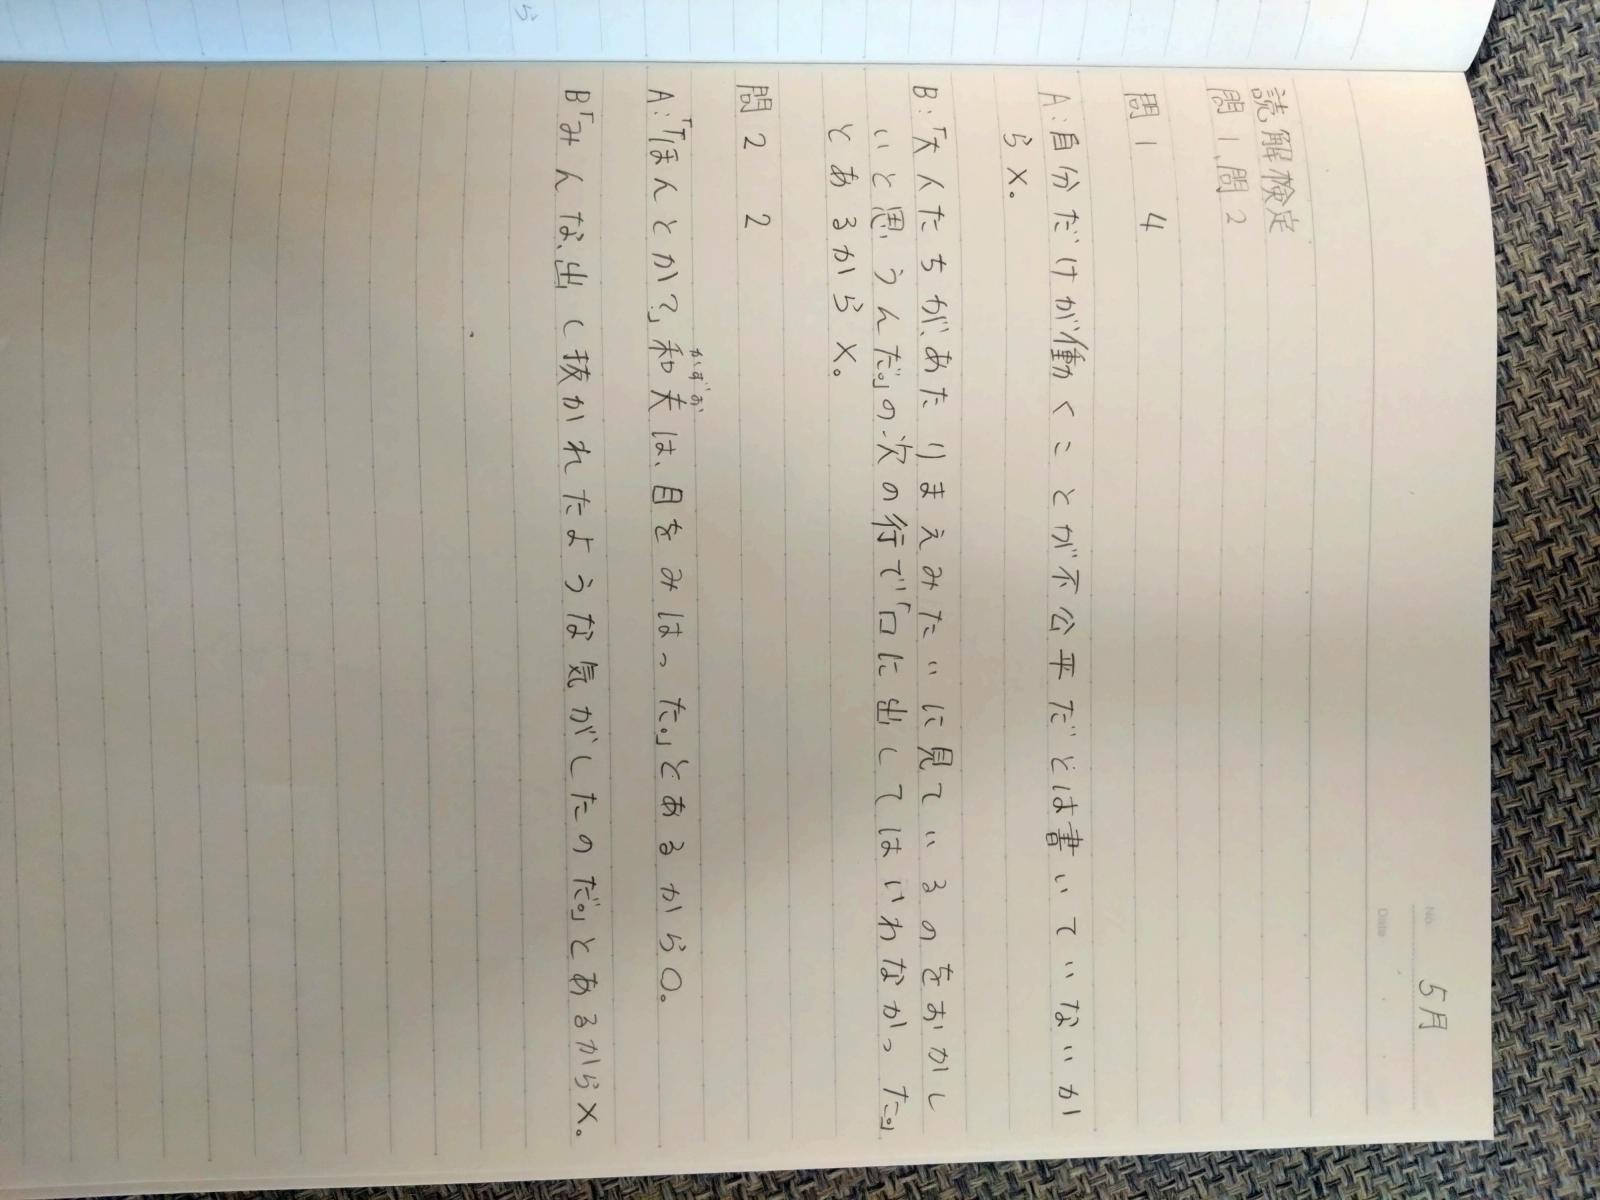 No.
5月
Date
読解検定
問1、問2
問1 4
A:自分だけが働くことが不公平だとは書いていないか
らX。
B:「大人たちが、あたりまえみたいに見ているのをおかし
いと思うんだ。」の次の行で「口に出してはいわなかった。」
とあるからX。
問2 2
かずお
A:「『ほんとか?』和夫は、目をみはった。」とあるから〇。
B「みんな、出し抜かれたような気がしたのだ。」とあるからX。
ら